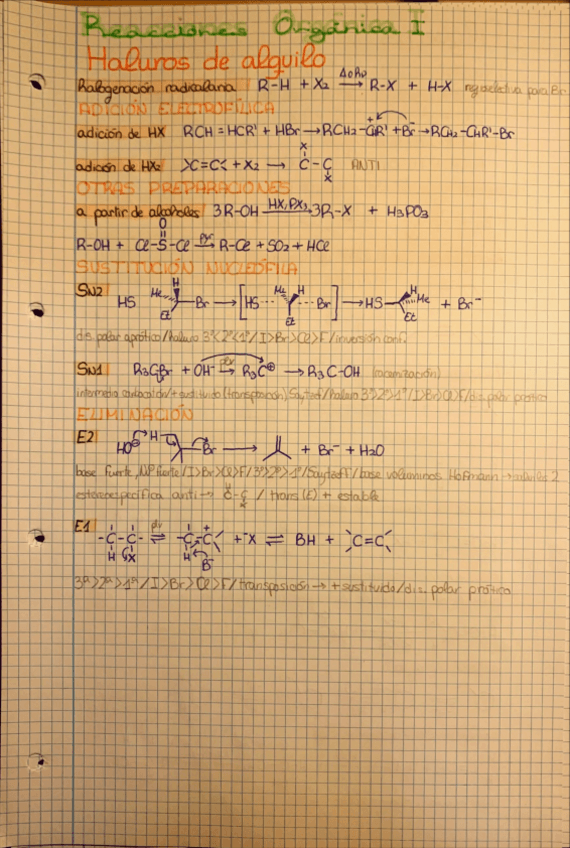 Reacciones Orgánica I
Haluros de alquilo
halogenación radicalaria R-H + X₂ →(Δ o hν) R-X + H-X regioselectiva para Br
ADICIÓN ELECTROFÍLICA
adición de HX RCH=HCR' + HBr → RCH₂-C⁺HR' + Br⁻ → RCH₂-CHR'-Br
adición de HX₂ >C=C< + X₂ → X-C-C-X ANTI
OTRAS PREPARACIONES
a partir de alcoholes 3R-OH →(HX, PX₃) 3R-X + H₃PO₃
R-OH + Cl-S(=O)-Cl →(pyr) R-Cl + SO₂ + HCl
SUSTITUCIÓN NUCLEÓFILA
SN2 HS Me H Et Br → [HS Me H Et Br] → HS H Me Et + Br⁻
dis. polar aprótico/haluro 3º<2º<1º/I>Br>Cl>F/inversión conf.
SN1 R₃CBr + OH⁻ → R₃C⊕ → R₃C-OH (racemización)
intermedio carbocatión/+ sustituido (transposición), /haluro 3º>2º>1º/I>Br>Cl>F/dis. polar prótico
ELIMINACIÓN
E2 HO⊖ H Br → + Br⁻ + H₂O
base fuerte, /I>Br>Cl>F/3º>2º>1º/ /base voluminosa Hofmann
estereoespecífica anti → X-C-C-X / trans (E) + estable
E1 -C-C- H X ⇌ -C-C⁺ H B⁻ + ⁻X ⇌ BH + >C=C<
3º>2º>1º/I>Br>Cl>F/transposición → + sustituido/dis. polar prótico